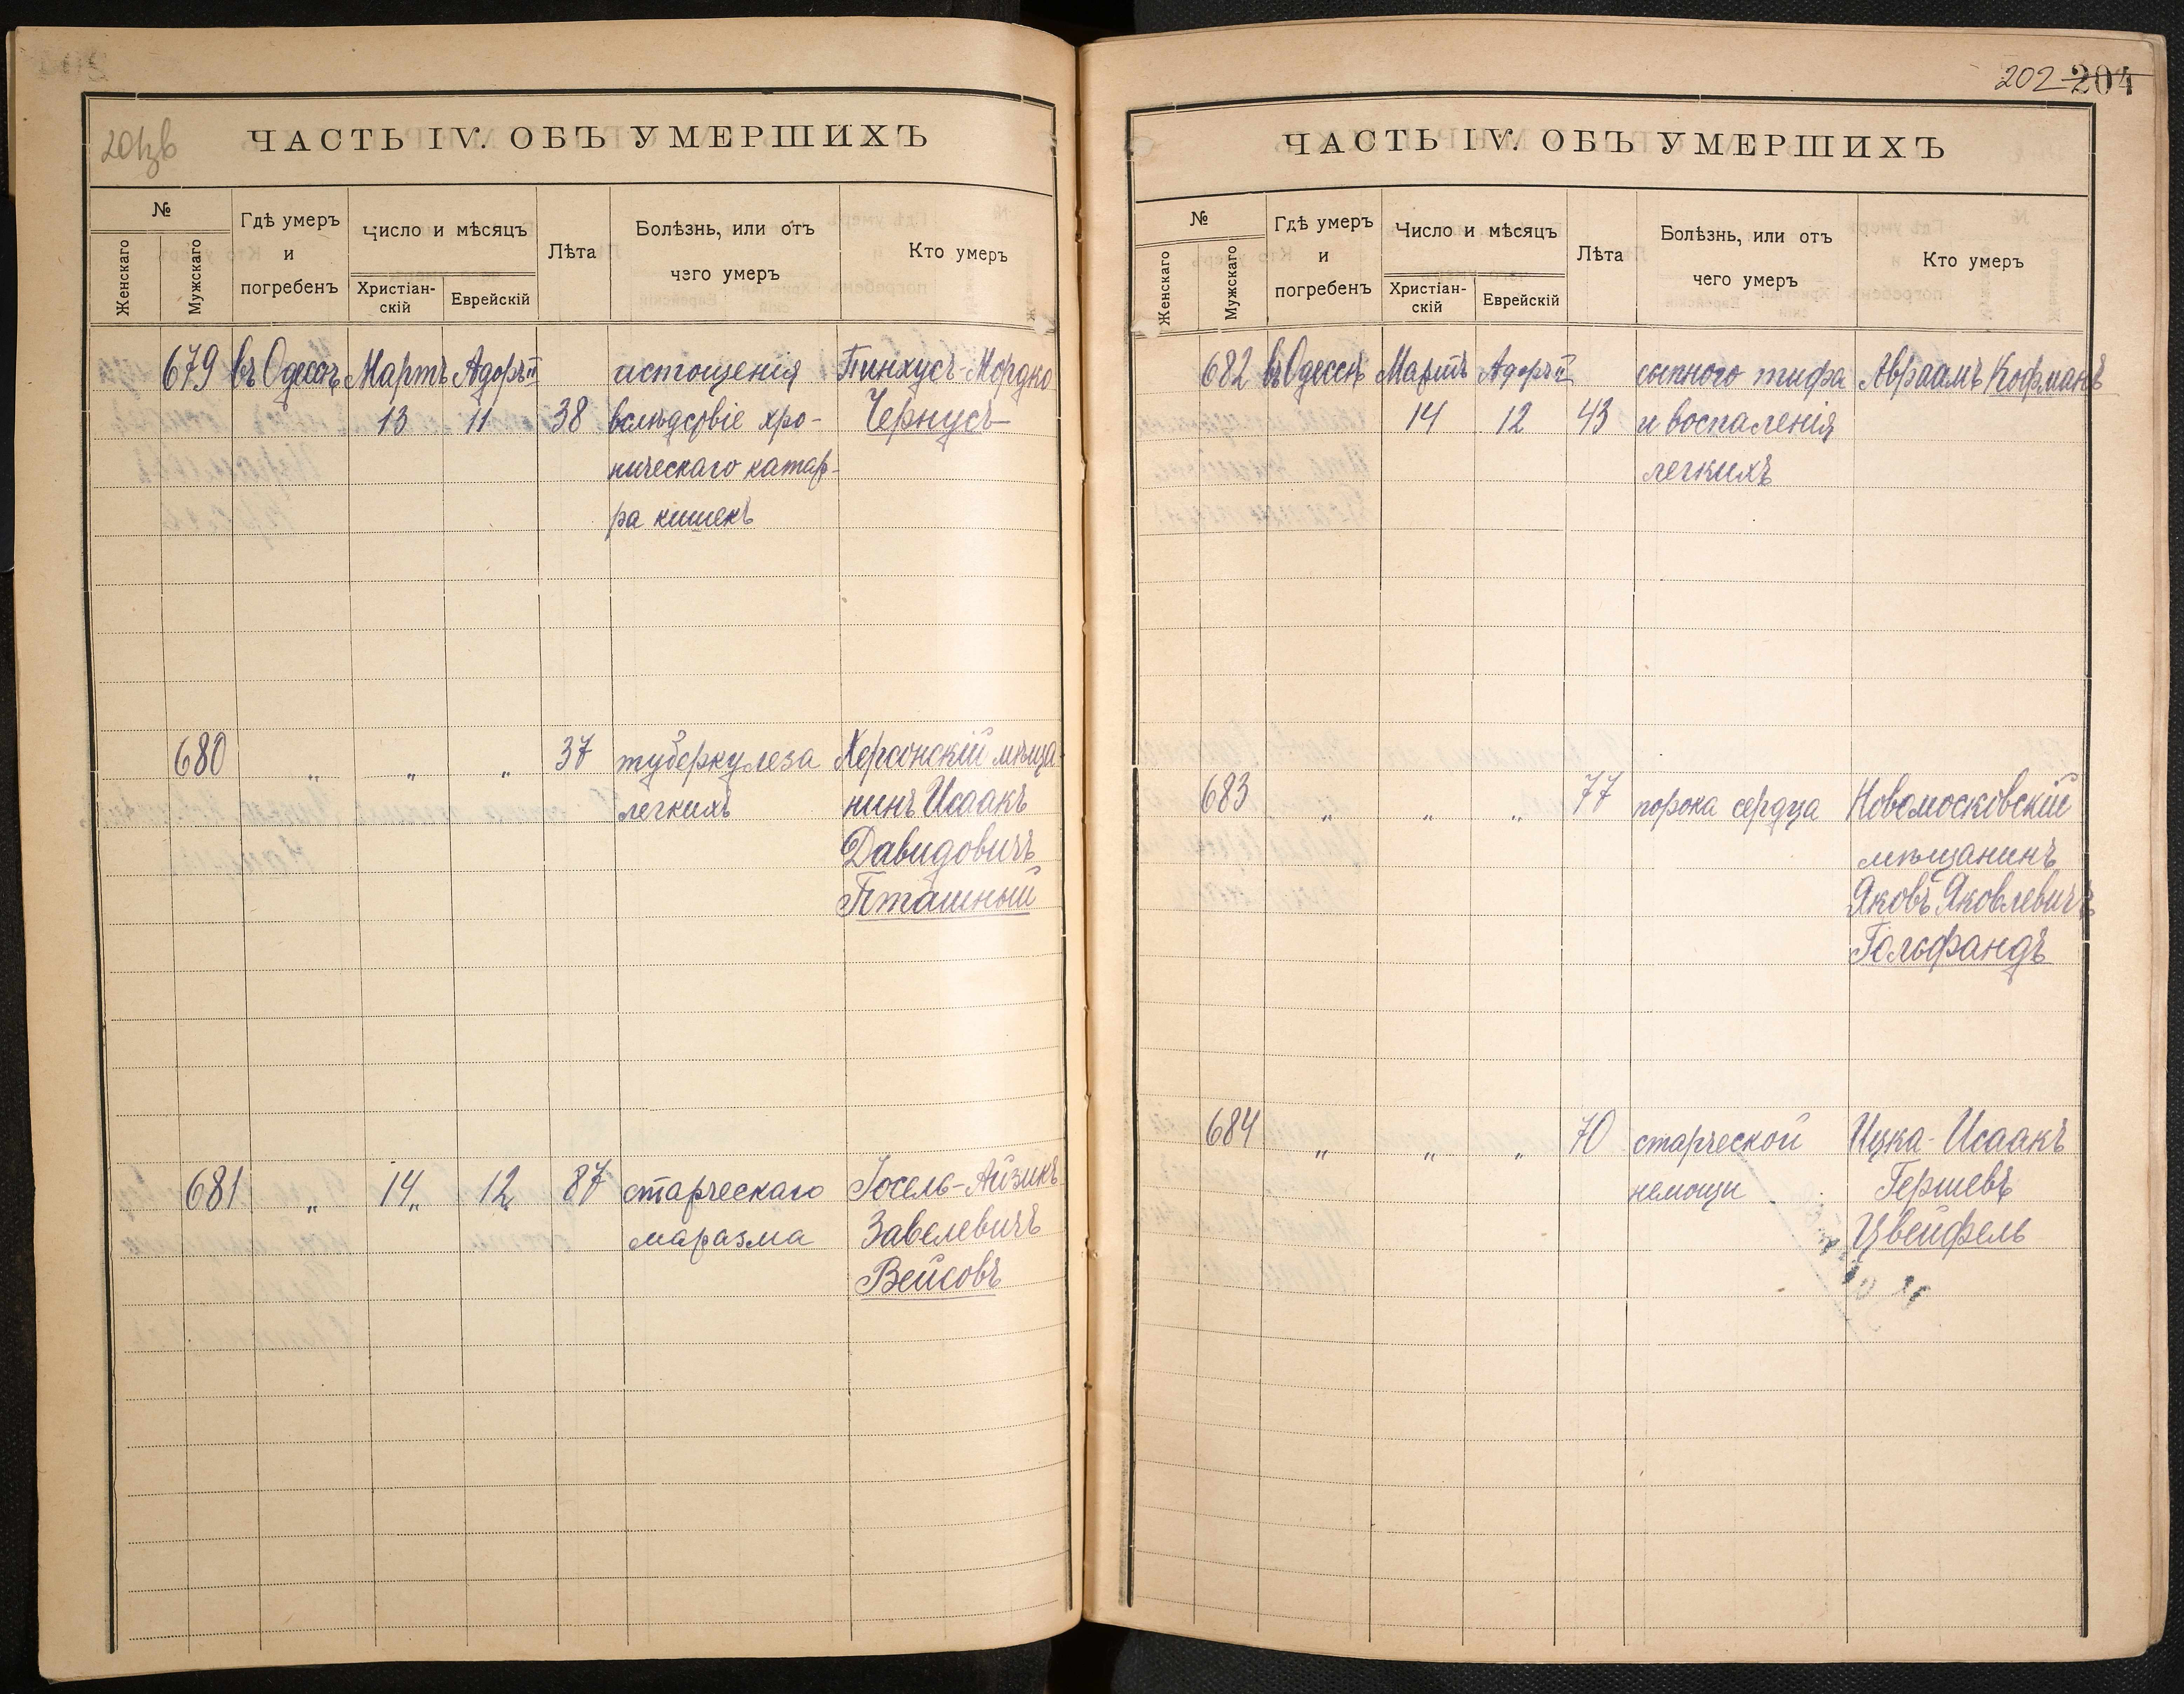 201зв
ЧАСТЬ IV. ОБЪ УМЕРШИХЪ
№
Женскаго
Мужскаго
Гдѣ умеръ
и
погребенъ
Число и мѣсяцъ
Христіан-
скій
Еврейскій
Лѣта
Болѣзнь, или отъ
чего умеръ
Кто умеръ
679 въ Одессѣ Мартъ Адоръ II истощенія Пинхусъ-Мордко
13 11 38 вслѣдствіе хро- Чернусъ
ническаго катар-
ра кишекъ
680 " " " 37 туберкулеза Херсонскій мѣща-
легкихъ нинъ Исаакъ
Давидовичъ
Пташный
681 " 14 " 12 87 старческаго Іосель-Айзикъ
маразма Завелевичъ
Вейсовъ
202 204
ЧАСТЬ IV. ОБЪ УМЕРШИХЪ
№
Женскаго
Мужскаго
Гдѣ умеръ
и
погребенъ
Число и мѣсяцъ
Христіан-
скій
Еврейскій
Лѣта
Болѣзнь, или отъ
чего умеръ
Кто умеръ
682 въ Одессѣ Мартъ Адоръ II сыпного тифа Авраамъ Кофманъ
14 12 43 и воспаленія
легкихъ
683 " " " 77 порока сердца Новомосковскій
мѣщанинъ
Яковъ Яковлевичъ
Гольфандъ
684 " " " 70 старческой Ицка-Исаакъ
немощи Гершевъ
Цвейфель